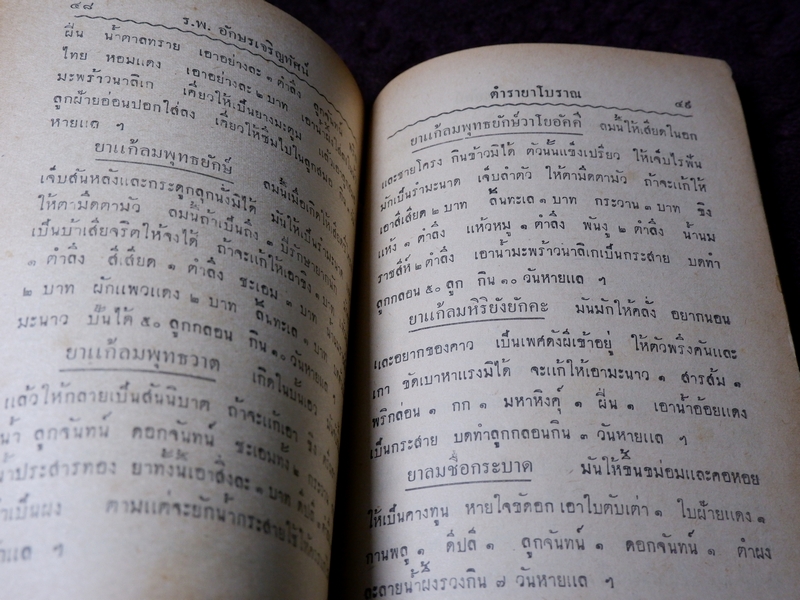 ๔๘
ร.พ. อักษรเจริญทัศน์
ผื่น น้ำตาลทราย เอาอย่างละ ๑ ตำลึง ลูกจันทน์
ไทย หอมแดง เอาอย่างละ ๒ บาท เอาน้ำมัน
มะพร้าวนาลิเก เคี่ยวให้เป็นยางมะตูม แล้ว
ลูกฝ้ายอ่อนปอกใส่ลง เคี่ยวให้ซึมไปในลูกสมอ กิน
หายแล ฯ
ยาแก้ลมพุทธยักษ์ ลมนั้นเมื่อเกิดให้เสียด
เจ็บสันหลังและกระดูกลุกนั่งมิได้ มันให้เป็นรำมะนาด
ให้ตามืดตามัว ลมนี้ถ้าเป็นถึง ๑ ปีรักษายากนัก
เป็นบ้าเสียจริตให้จงได้ ถ้าจะแก้ให้เอาขิง ๑ บาท
๑ ตำลึง สีเสียด ๑ ตำลึง ชะเอม ๓ บาท
๒ บาท ผักแพวแดง ๒ บาท ลิ้นทะเล ๑ บาท
มะนาว ปั้นได้ ๕๐ ลูกกลอน กิน ๑๐ วันหายแล ฯ
ยาแก้ลมพุทธวาต เกิดในบั้นเอว
แล้วให้กลายเป็นสันนิบาต ถ้าจะแก้เอา ขิง
ลูกจันทน์ ดอกจันทน์ ชะเอมทั้ง ๒
น้ำประสารทอง ยาทั้งนี้เอาสิ่งละ ๑ บาท ดีปลี ๑ ตำลึง
ทำเป็นผง ตามแต่จะยักน้ำกระสายใช้ให้
แล ฯ
ตำรายาโบราณ
๔๙
ยาแก้ลมพุทธยักษ์วาโยอัคคี ลมนี้ให้เสียดในอก
และชายโครง กินข้าวมิได้ ตัวนั้นแข็งเปรียว ให้เจ็บไรฟัน
มักเป็นรำมะนาด เจ็บลำตัว ให้ตามืดตามัว ถ้าจะแก้ให้
เอาสีเสียด ๒ บาท ลิ้นทะเล ๑ บาท กระวาน ๓ บาท ขิง
แห้ง ๑ ตำลึง แห้วหมู ๑ ตำลึง พันงู ๒ ตำลึง น้ำนม
ราชสีห์ ๒ ตำลึง เอาน้ำมะพร้าวนาลิเกเป็นกระสาย บดทำ
ลูกกลอน ๕๐ ลูก กิน ๑๐ วันหายแล ฯ
ยาแก้ลมหิริยังยักคะ มันมักให้คลั่ง อยากนอน
และอยากของคาว เป็นเพศดังผีเข้าอยู่ ให้ตัวพริ้งคันและ
เกา ขัดเบาหาแรงมิได้ จะแก้ให้เอามะนาว ๑ สารส้ม ๑
พริกล่อน ๑ กก ๑ มหาหิงคุ์ ๑ ผื่น ๑ เอาน้ำอ้อยแดง
เป็นกระสาย บดทำลูกกลอนกิน ๓ วันหายแล ฯ
ยาลมชื่อกระบาด มันให้ขึ้นขม่อมและคอหอย
ให้เป็นคางทูน หายใจขัดอก เอาใบตับเต่า ๑ ใบฝ้ายแดง ๑
กานพลู ๑ ดีปลี ๑ ลูกจันทน์ ๑ ดอกจันทน์ ๑ ตำผง
ละลายน้ำผึ้งรวงกิน ๗ วันหายแล ฯ